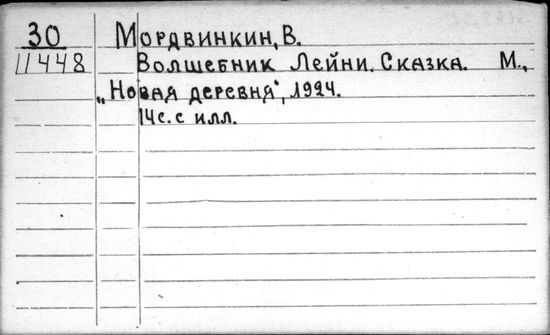 30 Мордвинкин, В.
11448 Волшебник Лейни. Сказка. М.,
„Новая деревня", 1924.
14с. с илл.